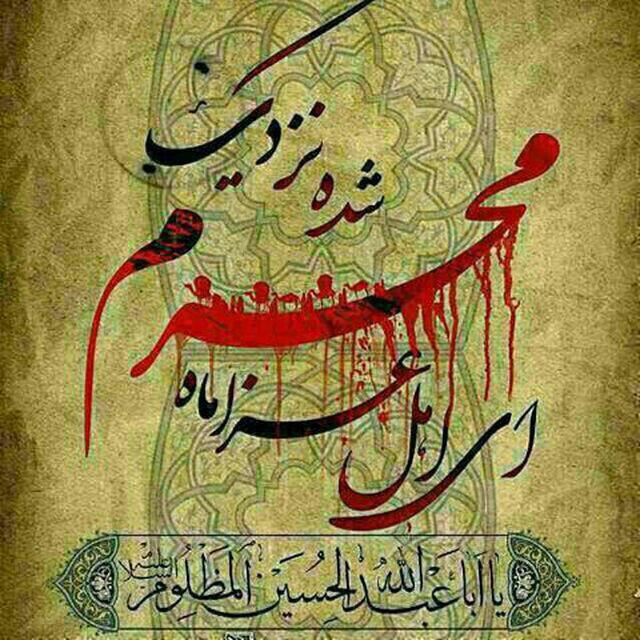 ای اهل عزا ماه
محرم
شده نزدیک
یا اباعبدالله الحسین المظلوم علیه السلام